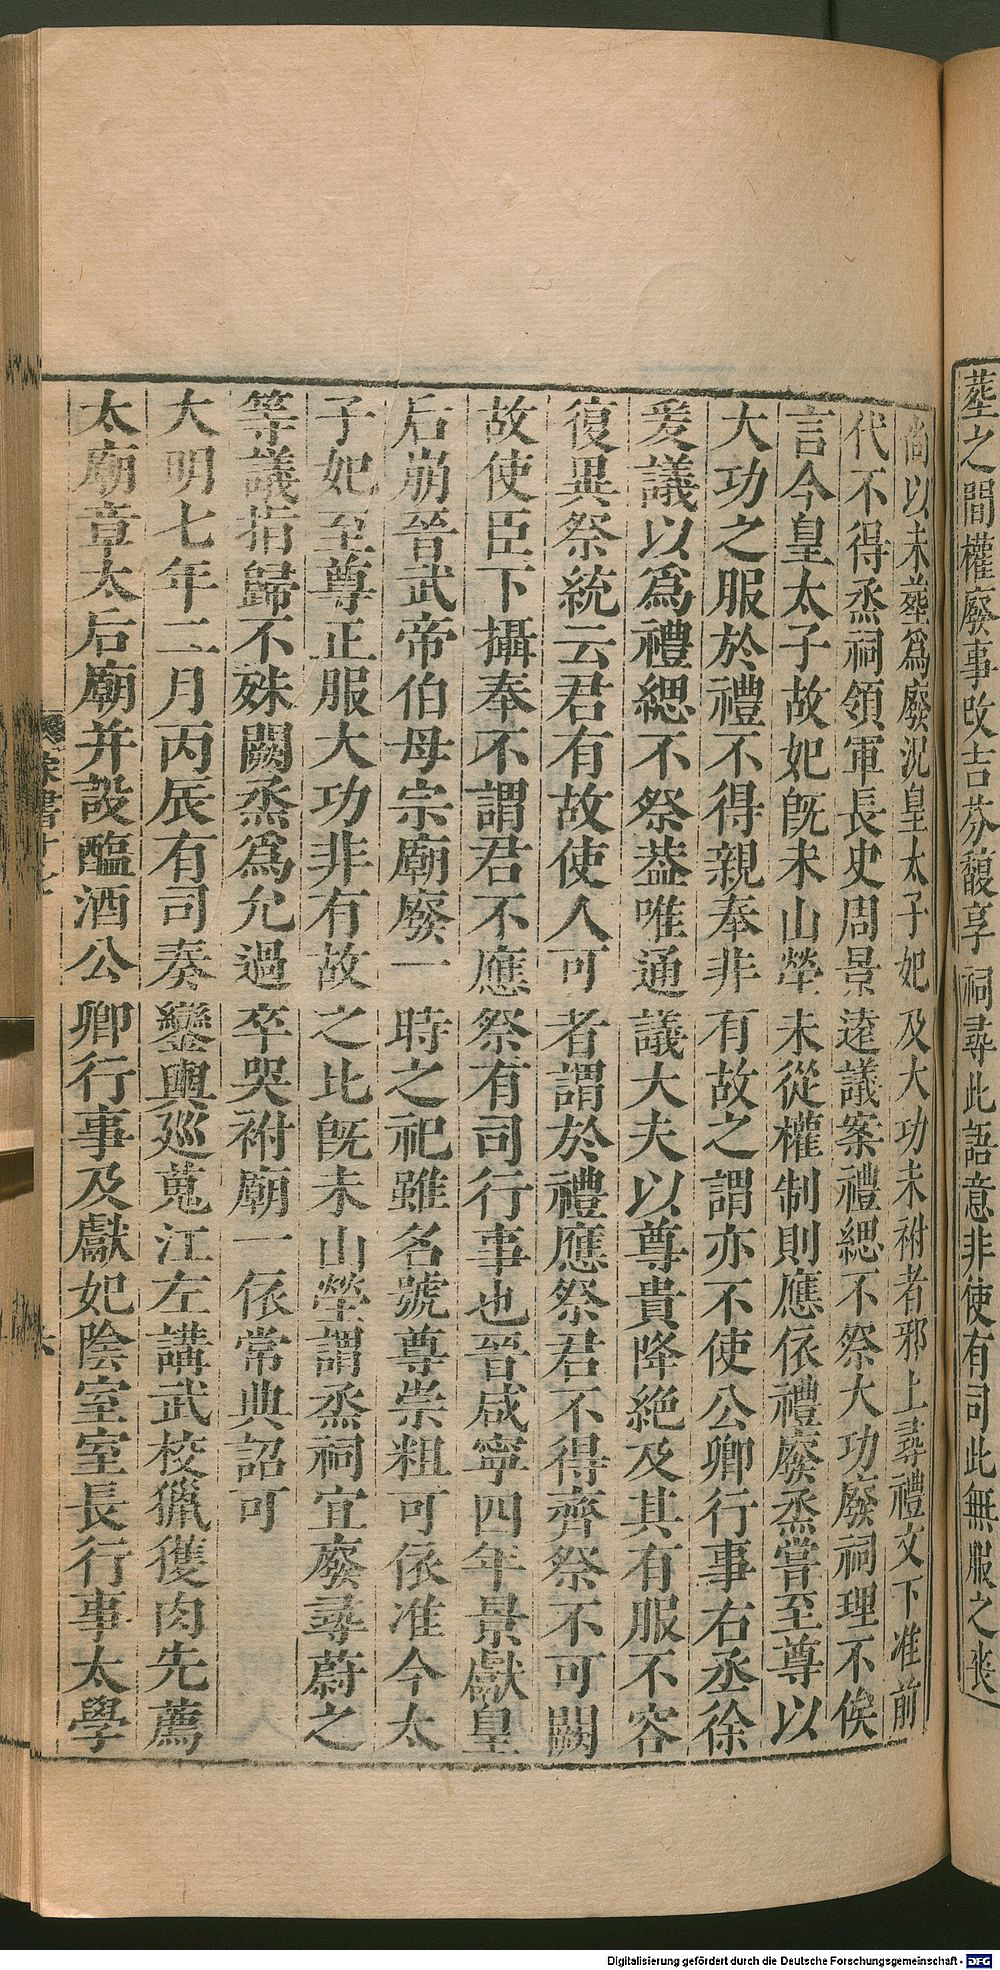 塟之間權廢事改吉芬馥享祠尋此語意非使有司此無服之喪
尚以未塟爲廢況皇太子妃及大功未祔者邪上尋禮文下准前
代不得烝祠領軍長史周景逵議案禮緦不祭大功廢祠理不俟
言今皇太子故妃旣未山塋未從權制則應依禮廢烝嘗至尊以
大功之服於禮不得親奉非有故之謂亦不使公卿行事右丞徐
爰議以爲禮緦不祭葢唯通議大夫以尊貴降絶及其有服不容
復異祭統云君有故使人可者謂於禮應祭君不得齊祭不可闕
故使臣下攝奉不謂君不應祭有司行事也晉咸寧四年景獻皇
后崩晉武帝伯母宗廟廢一時之祀雖名號尊崇粗可依准今太
子妃至尊正服大功非有故之比旣未山塋謂烝祠宜廢尋蔚之
等議指歸不殊闕烝爲允過卒哭祔廟一依常典詔可
大明七年二月丙辰有司奏鑾輿廵蒐江左講武校獵獲肉先薦
太廟章太后廟并設醢酒公卿行事及獻妃陰室室長行事太學
Digitalisierung gefördert durch die Deutsche Forschungsgemeinschaft - DFG